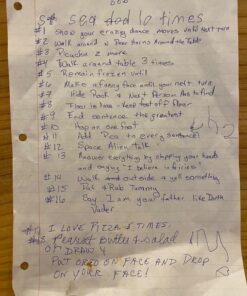 sed 10 times
#1 Show your crazy dance moves until next turn
#2 Walk around a Four turns Around the Table
#3 Peucha 2 more
#4 Walk around table 3 times
#5 Remain frozen until
#6 Make a funny face until your next turn
#7 Hide Peek & Next Person Has to find
#8 Floor is lava - Keep feet off Floor
#9 End sentence the greatest
#10 Hop on one foot
#11 Add Pea to every sentence!
#12 Space Alien Talk
#13 Answer everything by flapping your hands
and saying "I believe in fairies"
#14 Walk outside & yell something
#15 Pat & Rub Tummy
#16 Say I am your father like Darth
Vader
I LOVE PIZZA 5 TIMES.
Peanut butter & salad
or DRAW 4
PUT OREO ON FACE AND DROP
ON YOUR FACE!